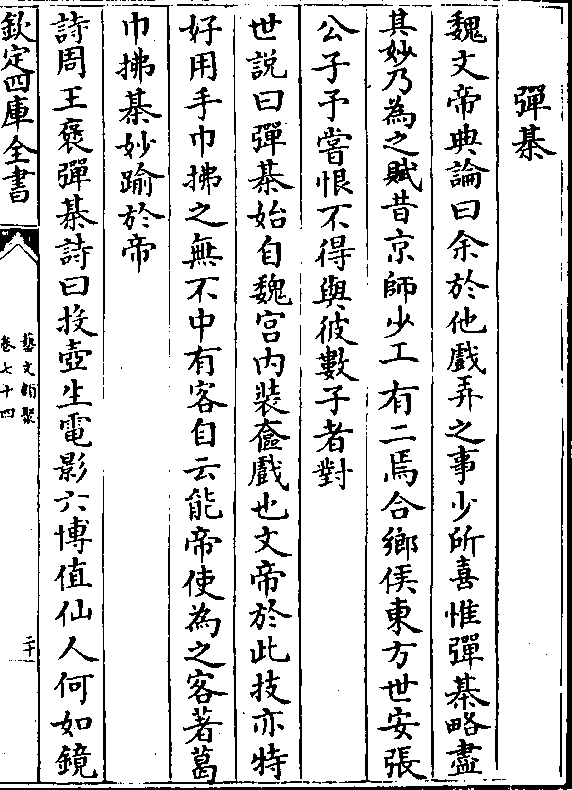 彈棊
魏文帝典論曰余於他戲弄之事少所喜惟彈棊略盡
其妙乃為之賦昔京師少工有二焉合鄉侯東方世安張
公子予嘗恨不得與彼數子者對
世說曰彈棊始自魏宫内装奩戲也文帝於此技亦特
好用手巾拂之無不中有客自云能帝使為之客著葛
巾拂棊妙踰於帝
詩周王褒彈棊詩曰投壺生電影六博值仙人何如鏡
欽定四庫全書
藝文類聚
卷七十四
二十